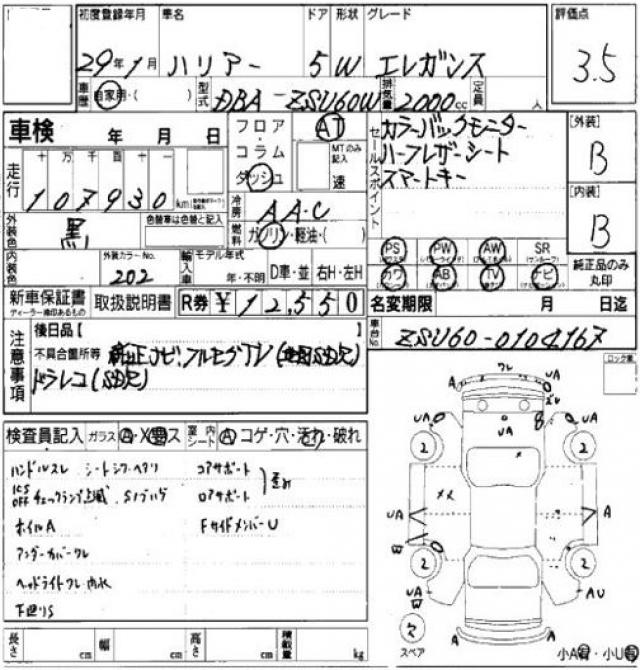 初度登録年月 車名 ドア 形状 グレード 評価点
29年1月 ハリアー 5 W エレガンス 3.5
車歴 自家用・( ) 型式 DBA-ZSU60W 排気量 2000cc 定員 人
車検 年 月 日
フロア AT
コラム MTのみ記入
ダッシュ 速
セールスポイント
カラーバックモニター
ハーフレザーシート
スマートキー
[外装]
B
[内装]
B
走行 十 万 千 百 十 一
107930 km
冷房 AAC
燃料 ガソリン・軽油・( )
外装色 黒 色替車は色替と記入
内装色 外装カラーNo. 202
輸入車 モデル年式 年・不明 D車・並 右H・左H
PS PW AW SR
カワ AB TV ナビ
純正品のみ丸印
新車保証書 取扱説明書 R券 ¥12,550
ディーラー捺印あるもの
名変期限 月 日迄
車台No. ZSU60-0104167
注意事項
後日品【
不具合箇所等
ドラレコ(SD欠)
ロック
検査員記入 ガラス A・X・ス 室内シート A コゲ・穴・汚れ・破れ
ハンドルスレ シートシワ・ヘタリ コアサポート
ICS OFF チェックランプ点滅 ロアサポート 歪み
ホイルA FサイドメンバーU
アンダーカバーワレ
ヘッドライトワレ・内水
下廻りS
ワレ
A UA
ズレ
UA B UA
UA
2 2
× ××
UA A
W
2 2
UA AU
W
2
スペア
A A
小A有・小U有
長さ cm 幅 cm 高さ cm 積載量 kg